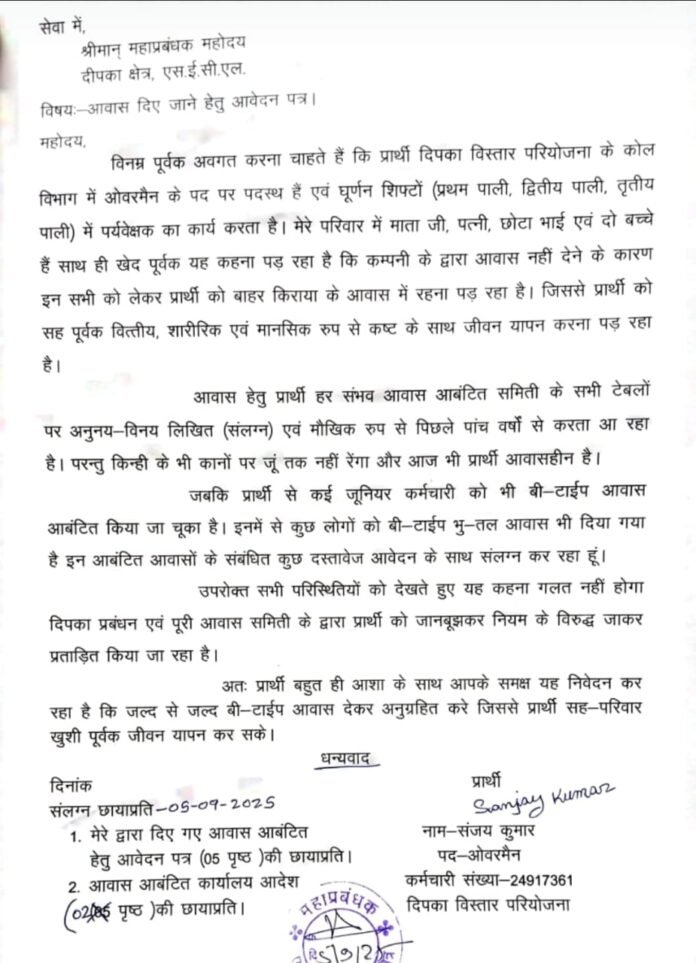 सेवा में,
श्रीमान् महाप्रबंधक महोदय
दीपका क्षेत्र, एस.ई.सी.एल.
विषयः–आवास दिए जाने हेतु आवेदन पत्र।
महोदय,
विनम्र पूर्वक अवगत करना चाहते हैं कि प्रार्थी दिपका विस्तार परियोजना के कोल
विभाग में ओवरमैन के पद पर पदस्थ हैं एवं घूर्णन शिफ्टों (प्रथम पाली, द्वितीय पाली, तृतीय
पाली) में पर्यवेक्षक का कार्य करता है। मेरे परिवार में माता जी, पत्नी, छोटा भाई एवं दो बच्चे
हैं साथ ही खेद पूर्वक यह कहना पड़ रहा है कि कम्पनी के द्वारा आवास नहीं देने के कारण
इन सभी को लेकर प्रार्थी को बाहर किराया के आवास में रहना पड़ रहा है। जिससे प्रार्थी को
सह पूर्वक वित्तीय, शारीरिक एवं मानसिक रुप से कष्ट के साथ जीवन यापन करना पड़ रहा
है।
आवास हेतु प्रार्थी हर संभव आवास आबंटित समिती के सभी टेबलों
पर अनुनय–विनय लिखित (संलग्न) एवं मौखिक रुप से पिछले पांच वर्षो से करता आ रहा
है। परन्तु किन्ही के भी कानों पर जूं तक नहीं रेंगा और आज भी प्रार्थी आवासहीन है।
जबकि प्रार्थी से कई जूनियर कर्मचारी को भी बी–टाईप आवास
आबंटित किया जा चूका है। इनमें से कुछ लोगों को बी–टाईप भु–तल आवास भी दिया गया
है इन आबंटित आवासों के संबंधित कुछ दस्तावेज आवेदन के साथ संलग्न कर रहा हूं।
उपरोक्त सभी परिस्थितियों को देखते हुए यह कहना गलत नहीं होगा
दिपका प्रबंधन एवं पूरी आवास समिती के द्वारा प्रार्थी को जानबूझकर नियम के विरुद्ध जाकर
प्रताड़ित किया जा रहा है।
अतः प्रार्थी बहुत ही आशा के साथ आपके समक्ष यह निवेदन कर
रहा है कि जल्द से जल्द बी–टाईप आवास देकर अनुग्रहित करे जिससे प्रार्थी सह–परिवार
खुशी पूर्वक जीवन यापन कर सके।
धन्यवाद
दिनांक
प्रार्थी
संलग्न छायाप्रति–05-09-2025
Sanjay Kumar
1. मेरे द्वारा दिए गए आवास आबंटित
नाम–संजय कुमार
हेतु आवेदन पत्र (05 पृष्ठ )की छायाप्रति।
पद–ओवरमैन
2. आवास आबंटित कार्यालय आदेश
कर्मचारी संख्या–24917361
(02 पृष्ठ )की छायाप्रति।
दिपका विस्तार परियोजना
महाप्रबंधक